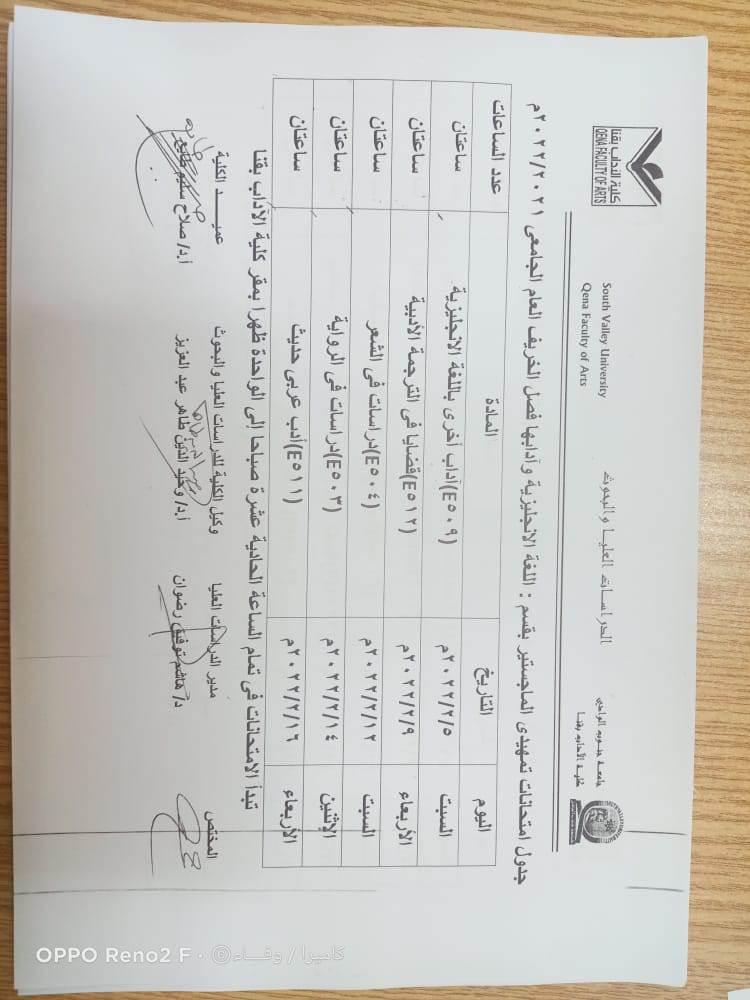 جامعة جنوب الوادي
كلية الآداب بقنا
الدراسات العليا والبحوث
South Valley University
Qena Faculty of Arts
كلية الآداب بقنا
QENA FACULTY OF ARTS
جدول امتحانات تمهيدى الماجستير بقسم : اللغة الانجليزية وآدابها فصل الخريف العام الجامعى ٢٠٢٢/٢٠٢١م
اليوم التاريخ المادة عدد الساعات
السبت ٢٠٢٢/٢/٥م (E٥٠٩)آداب أخرى باللغة الانجليزية ساعتان
الأربعاء ٢٠٢٢/٢/٩م (E٥١٢)قضايا فى الترجمة الأدبية ساعتان
السبت ٢٠٢٢/٢/١٢م (E٥٠٤)دراسات فى الشعر ساعتان
الإثنين ٢٠٢٢/٢/١٤م (E٥٠٣)دراسات فى الرواية ساعتان
الأربعاء ٢٠٢٢/٢/١٦م (E٥١١)أدب عربى حديث ساعتان
تبدأ الامتحانات فى تمام الساعة الحادية عشرة صباحا إلى الواحدة ظهرا بمقر كلية الآداب بقنا
المختص مدير الدراسات العليا وكيل الكلية للدراسات العليا والبحوث عميد الكلية
د/ هاشم توفيق رضوان أ.د/ وحيد الدين طاهر عبد العزيز أ.د/ صلاح سليم طايع
OPPO Reno2 F · ©كاميرا / وفاء